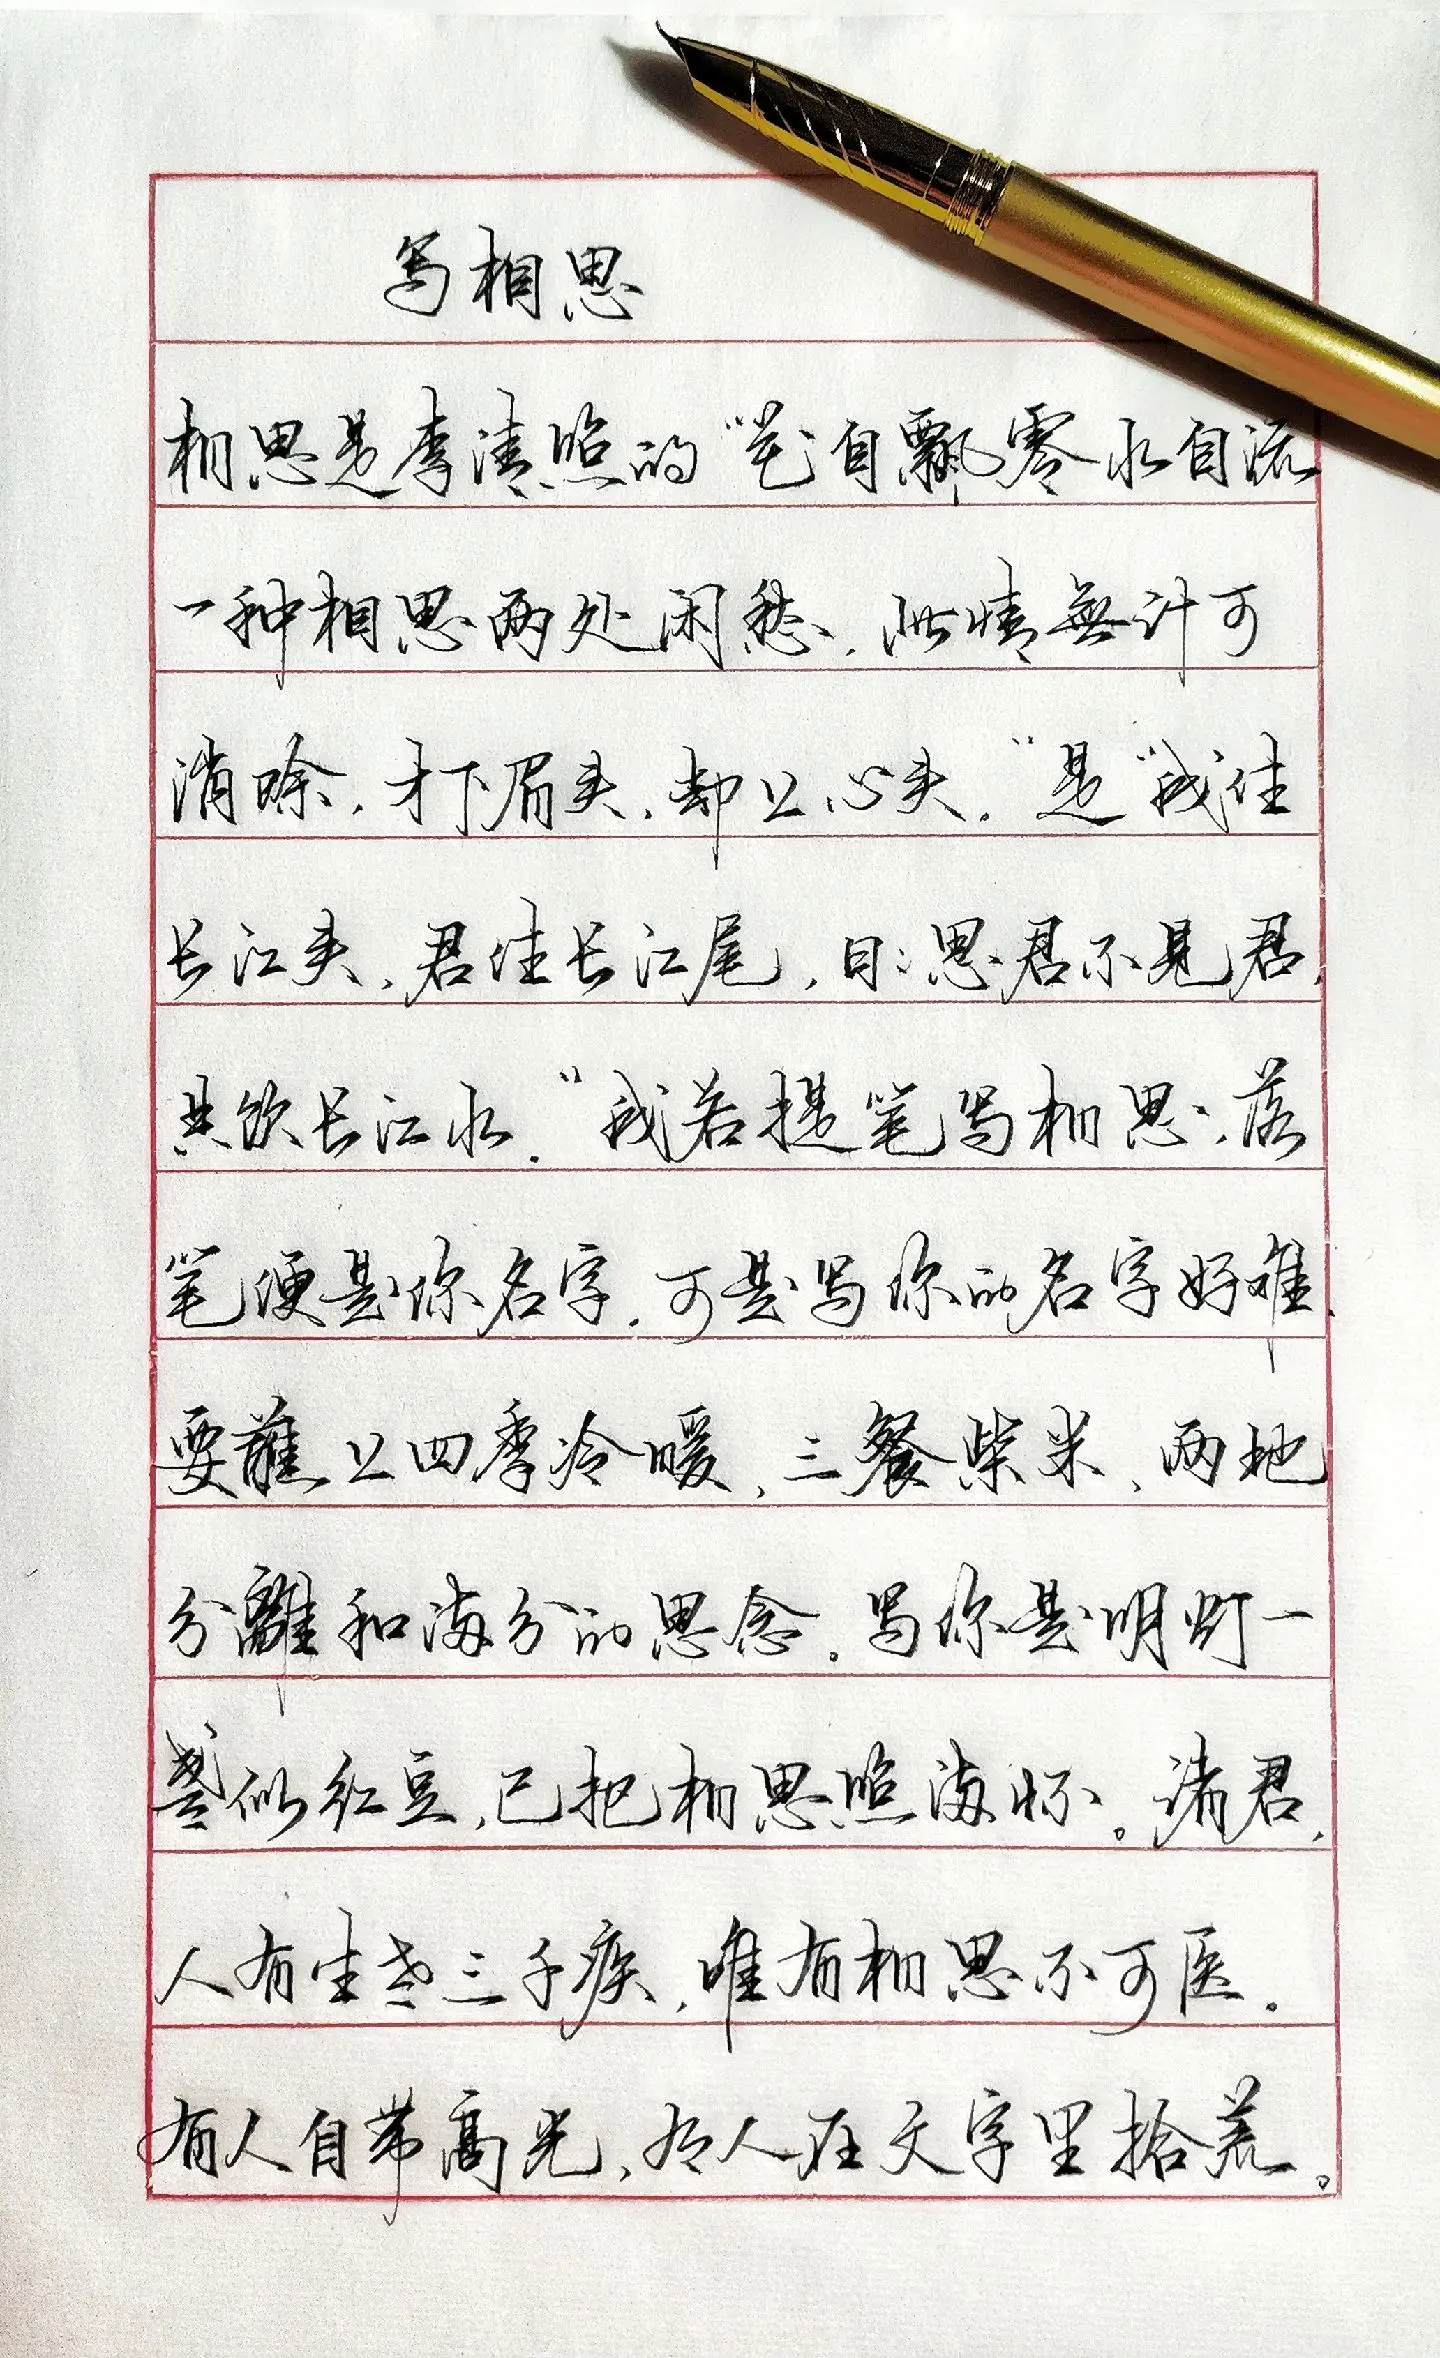 写相思
相思是李清照的“花自飘零水自流
一种相思两处闲愁,此情無计可
消除,才下眉头,却上心头。”是“我住
长江头,君住长江尾,日日思君不见君,
共饮长江水。”我若提笔写相思,落
笔便是你名字,可是写你的名字好难,
要蘸上四季冷暖,三餐柴米,两地
分離和满分的思念。写你是明灯一
盏似红豆,已把相思照满怀。诸君,
人有生老三千疾,唯有相思不可医。
有人自带高光,有人在文字里拾荒。